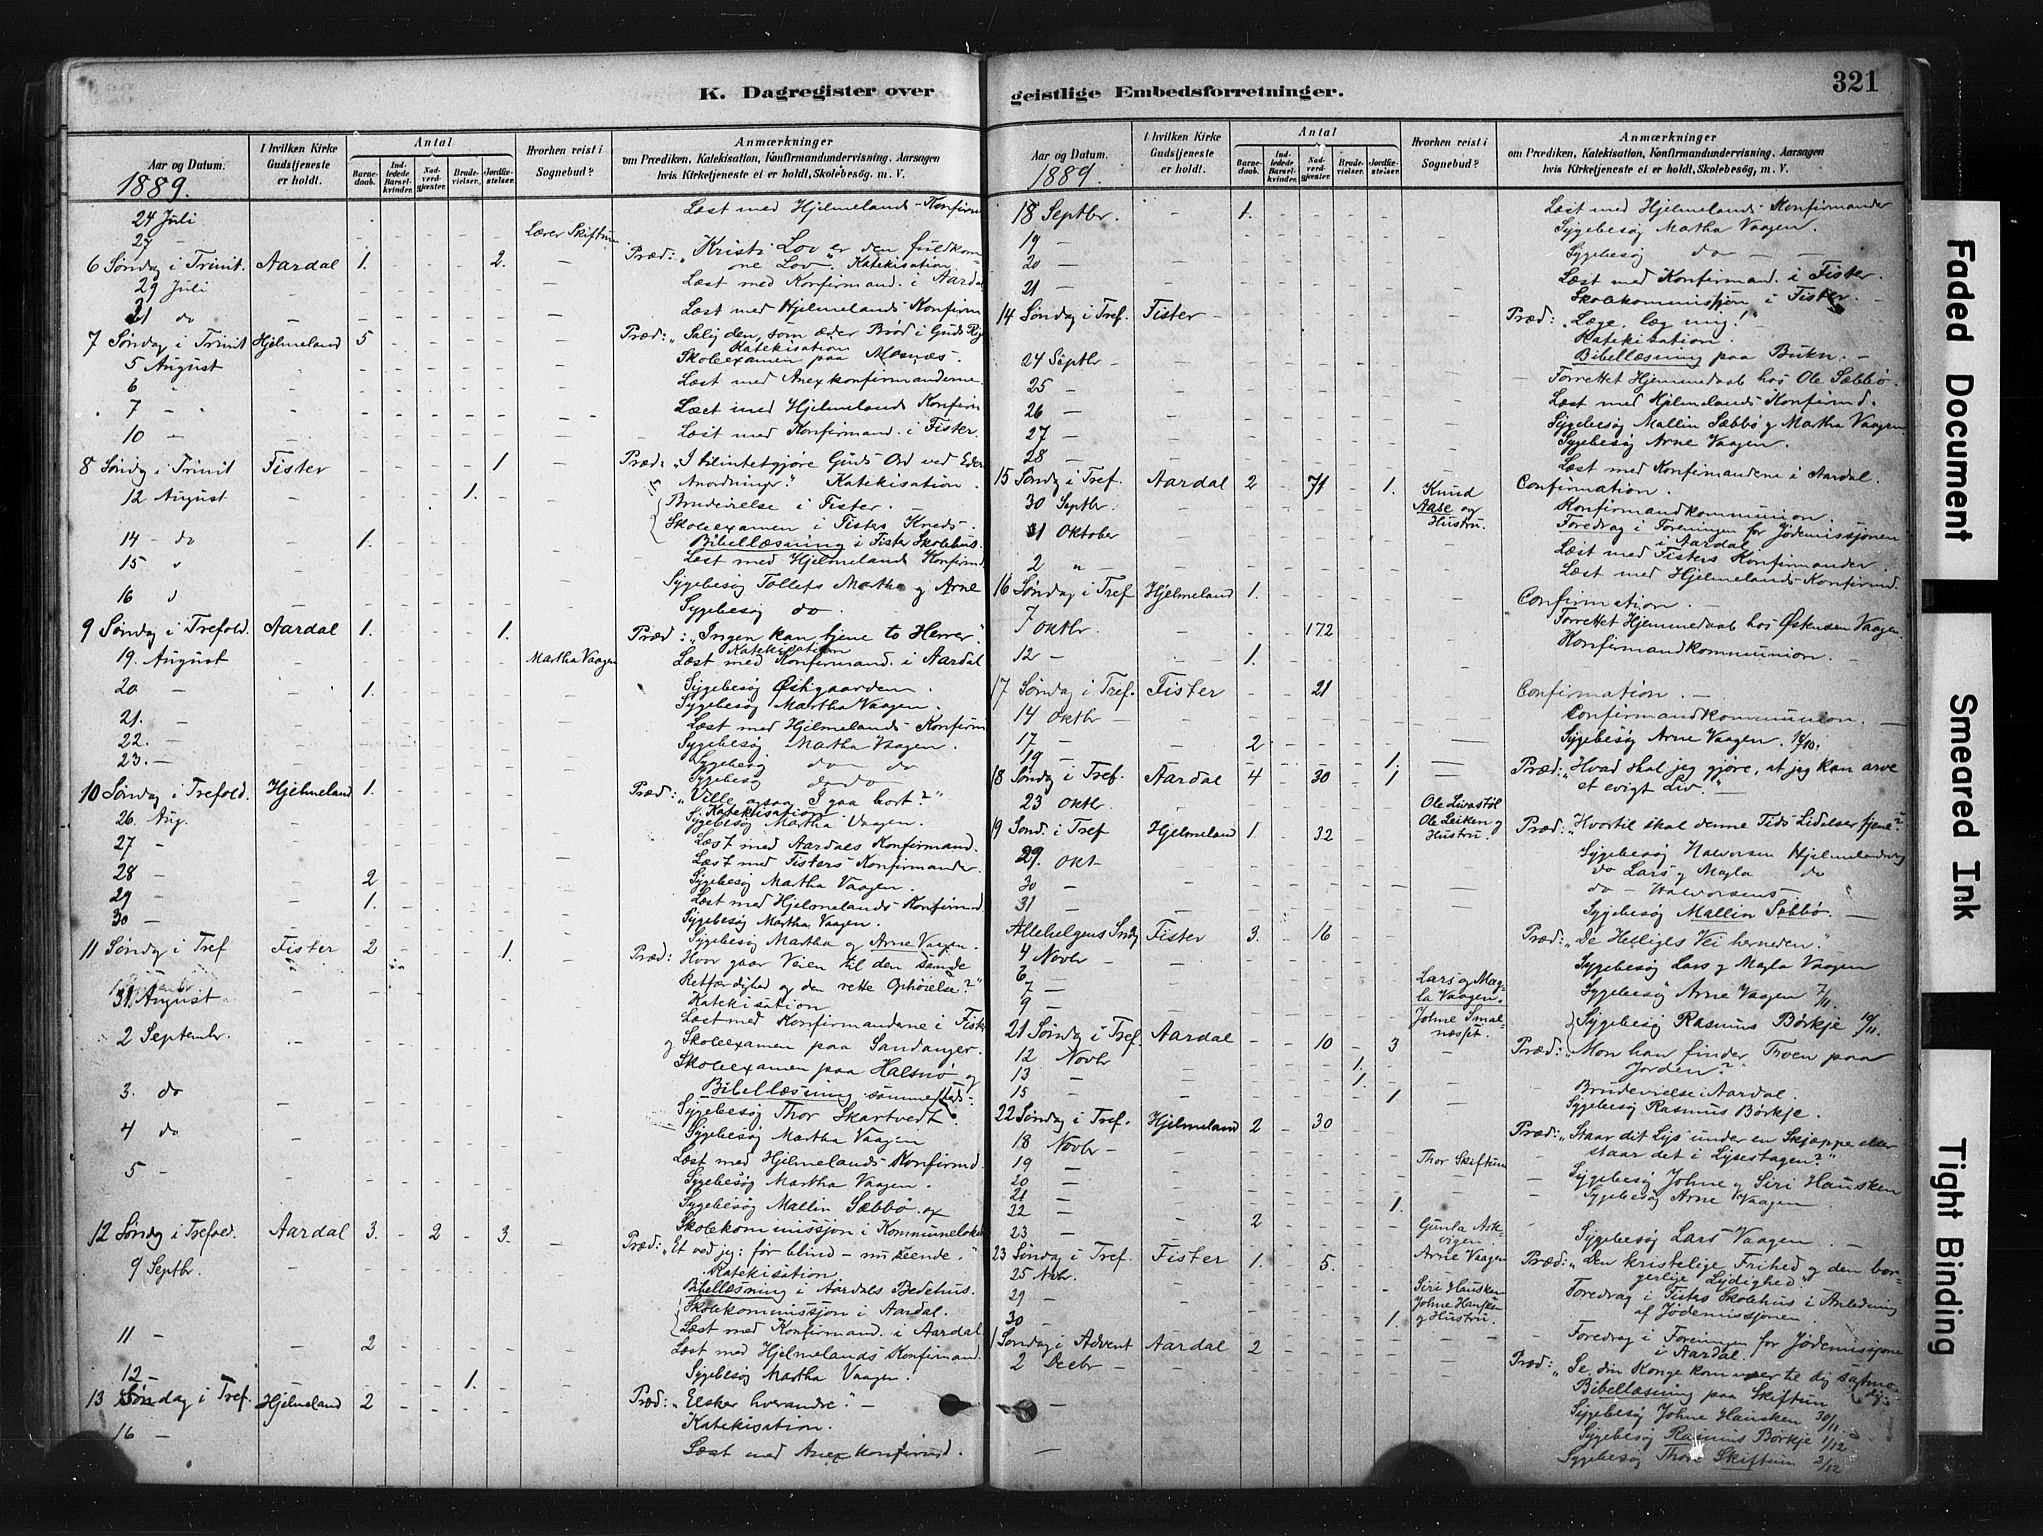 K. Dagregister over
Aar og Datum.
1889.
I hvilken Kirke Gudstjeneste er holdt.
Antal
Barnedaab.
Indledede Barselkvinder.
Nadverdgjæster.
Brudevielser.
Jordfæstelser.
Hvorhen reist i Sognebud?
Anmærkninger
om Prædiken, Katekisation, Konfirmandundervisning, Aarsagen
hvis Kirketjeneste ei er holdt, Skolebesøg, m. V.
24 Juli - Læst med Hjelmelands Konfirm
27 - Lærer Skiftun
6 Søndag i Trinit. Aardal 1. - - - 2. - Præd: "Kristi Lov er den fuldkom-
ne Lov". Katekisation
29 Juli - Læst med Konfirmand. i Aardal
31 do - Læst med Hjelmelands Konfirm
7 Søndag i Trinit Hjelmeland 5 - Præd: "Salig den, som æder Brød i Guds Rig
Katekisation
5 August Skoleexamen paa Mosnæs -
6 " Læst med Anexkonfirmanderne.
7 - Læst med Hjelmelands Konfirm
10 - Læst med Konfirmand. i Fister.
8 Søndg i Trinit Fister - 1 - Præd: "I tilintetgjøre Guds Ord ved Eders
Anordninger." Katekisation.
12 August - 1. Brudevielse i Fister -
Skoleexamen i Fisters Kreds -
Bibellæsning i Fister Skolehus.
14 - do 1. Læst med Hjelmelands Konfirmd
15 Sygebesøg Tollefs Martha og Arne
16 Sygebesøg do.
9 Søndag i Trefold. Aardal 1. - 1. - Præd: "Ingen kan tjene to Herrer."
Katekisation
19. August Martha Vaagen Læst med Konfirmand. i Aardal
20 - 1. Sygebesøg Østigaarden.
21. - Sygebesøg Martha Vaagen.
22. - Læst med Hjelmelands Konfirm
23. - Sygebesøg Martha Vaagen.
Sygebesøg do do
Sygebesøg do do
10 Søndag i Trefold. Hjelmeland 1. Præd: "Ville ogsaa I gaa bort?"
Katekisation
26. Aug. Sygebesøg Martha Vaagen.
27 - Læst med Aardals Konfirmand.
Læst med Fisters Konfirmander
28 - 2 Sygebesøg Martha Vaagen.
29 - 1. Læst med Hjelmelands Konfirmd.
30 - Sygebesøg Martha Vaagen.
Sygebesøg Martha og Arne Vaagen.
11 Søndag i Tref Fister 2 - 1. - Præd: Hvor gaar Veien til den sande
Retfærdighed og den rette Ophøielse?"
Katekisation
31 August Læst med Konfirmandene i Fister
2 Septembr. og Skoleexamen paa Sandanger.
Skoleexamen paa Halsnø og
Bibellæsning sammesteds.
3. do Sygebesøg Thor Skartvedt.
4 do Sygebesøg Martha Vaagen
Læst med Hjelmelands Konfirmd.
5 - Sygebesøg Martha Vaagen.
Sygebesøg Mallin Sæbbø og
Skolekommissjon i Kommunelokal
12 Søndg i Trefold. Aardal 3. - 2 - 3. - Præd: "Et ved jeg: før blind - nu seende."
Katekisation
9 Septbr. Bibellæsning i Aardals Bedehus.
Skolekommissjon i Aardal.
Læst med Konfirmand. i Aardal
11 - 2 Læst med Hjelmelands Konfirmand
12 - 1. Sygebesøg Martha Vaagen.
13 Søndag i Tref. Hjelmeland 2 - Præd: "Elsker hverandre." -
Katekisation.
16 - Læst med Anexkonfirmd.
geistlige Embedsforretninger.
321
Aar og Datum.
1889.
I hvilken Kirke Gudstjeneste er holdt.
Antal
Barnedaab.
Indledede Barselkvinder.
Nadverdgjæster.
Brudevielser.
Jordfæstelser.
Hvorhen reist i Sognebud?
Anmærkninger
om Prædiken, Katekisation, Konfirmandundervisning, Aarsagen
hvis Kirketjeneste ei er holdt, Skolebesøg, m. V.
18 Septbr. 1. Læst med Hjelmelands Konfirmander
19 - Sygebesøg Martha Vaagen.
20 - Sygebesøg do
21 - Læst med Konfirmand. i Fister.
Skolekommissjon i Fister.
14 Søndag i Tref. Fister - Præd: "Læge, læg mig!"
Katekisation.
24 Septbr Bibellæsning paa Bukn. -
25 - Forrettet Hjemmedaab hos Ole Sæbbø.
26 - Læst med Hjelmelands Konfirmd.
27 - Sygebesøg Mallin Sæbbø og Martha Vaagen
28 - Sygebesøg Arne Vaagen.
Læst med Konfirmandene i Aardal.
15 Søndg i Tref. Aardal 2 - 71 - 1. Knud Aase og Hustru. Confirmation.
30 Septbr. Konfirmandkommunion.
31 Oktober Foredrag i Foreningen for Jødemissjonen
i Aardal
2 " - Læst med Fisters Konfirmander.
Læst med Hjelmelands Konfirmd
16 Søndag i Tref Hjelmeland 1. Confirmation. -
7 Oktbr. 172 Forrettet Hjemmedaab hos Østensen Vaagen
12 - 1. Konfirmandkommunion.
17 Søndag i Tref. Fister - 21 Confirmation. -
14 Oktbr Confirmandkommunion. -
17 - 2 Sygebesøg Arne Vaagen. 14/10.
19 - 1.
18 Søndg i Tref. Aardal 4 - 30 - 1 Præd: "Hvad skal jeg gjøre, at jeg kan arve
et evigt Liv."
23 Oktbr. Ole Livastøl
19 Sønd. i Tref Hjelmeland 1. - 32 Ole Leiken og Hustru. Præd: "Hvortil skal denne Tids Lidelser tjene?"
29. Okt - Sygebesøg Halvorsen Hjelmelandsvg
30 - do Lars og Magla do
31 - do - Halvorsens -
Sygebesøg Mallin Sæbbø. -
Allehelgens Sndg Fister 3. - 16 Præd: "De Helliges Vei herneden."
4 Novbr Sygebesøg Lars og Magla Vaagen
6 - Lars og Mag-
7 - la Vaagen. Sygebesøg Arne Vaagen 7/11.
9 - Johne Smal-
næsset. Sygebesøg Rasmus Børkje 10/11.
21 Søndg i Tref. Aardal - 10 - 3 Præd: "Mon han finder Troen paa
Jorden?"
12 Novbr 1.
13 - 1. Brudevielse i Aardal.
15 - 1 Sygebesøg Rasmus Børkje.
22 Søndg i Tref. Hjelmeland 2 - 30 Præd: "Staar dit Lys under en Skjæppe eller
staar det i Lysestagen?"
18 Novbr
19 - Thor Skiftun Sygebesøg Johne og Siri Hausken
20 - Sygebesøg Arne Vaagen.
21 -
22 - 1.
23 - 2 Gunla Ark-
vigen. Sygebesøg Lars Vaagen. -
23 Søndag i Tref. Fister 1. - 5. Arne Vaagen Præd: "Den kristelige Frihed og den bor-
gerlige Lydighed"
25 Nvbr. Siri Hausken Foredrag i Fisters Skolehus i Anledning
29 - Johne Hausken af Jødemissjonen.
30 - 1. og Hustru.
1 Søndag i Advent Aardal 2 Foredrag i Foreningen for Jødemissjone
i Aardal.
2 Decbr - Præd: "Se, din Konge kommer til dig sagtmo-
dig."
Bibellæsning paa Skiftun
Sygebesøg Johne Hausken 30/11
Sygebesøg Rasmus Børkje 1/12
Sygebesøg Thore Skiftun 3/12
Faded Document
Smeared Ink
Tight Binding